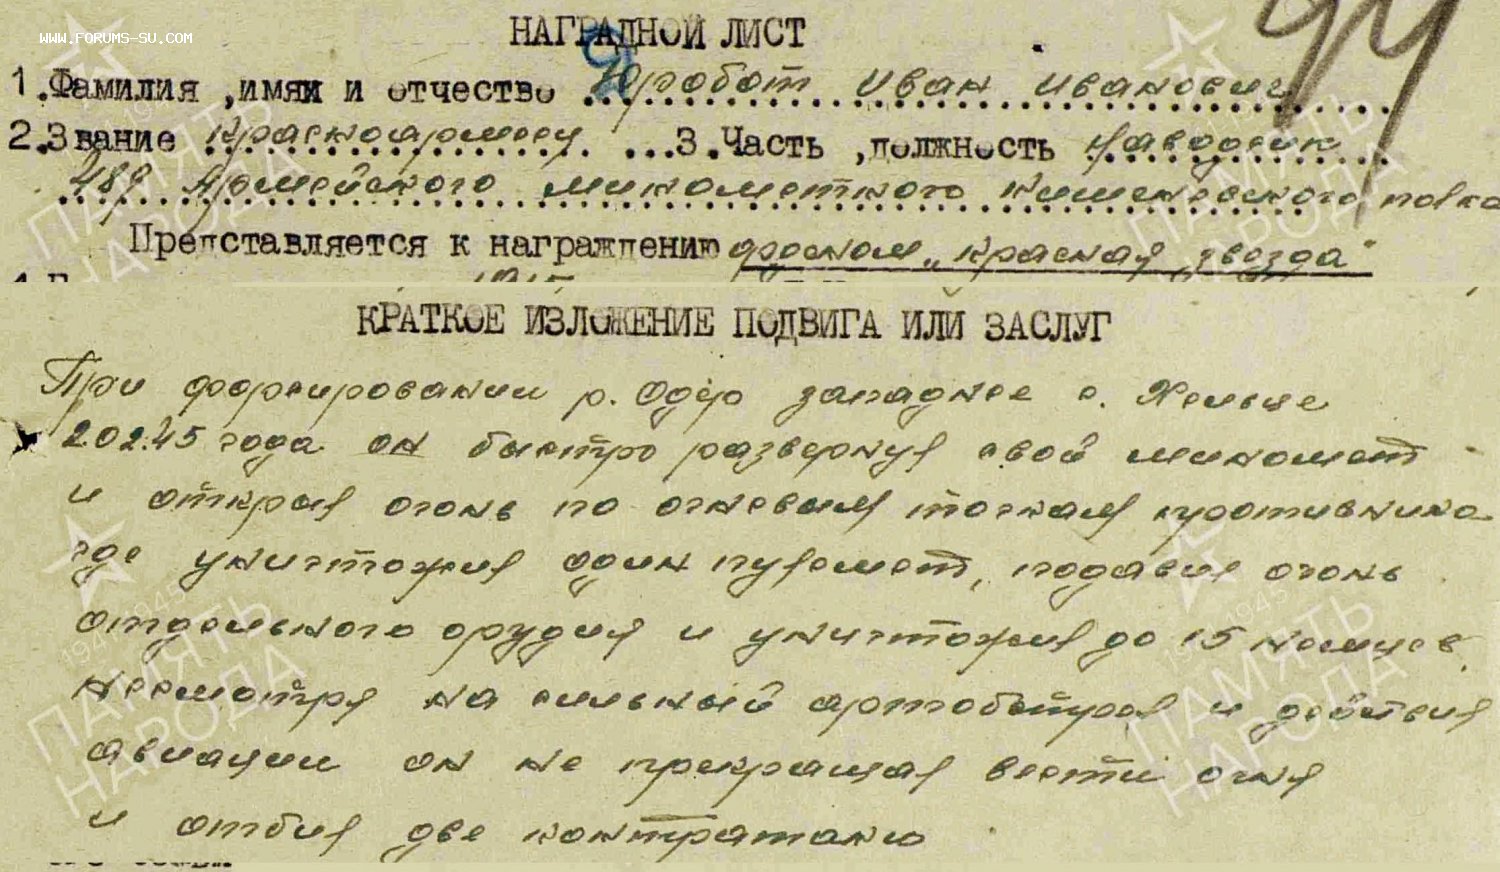 WWW.FORUMS-SU.COM
НАГРАДНОЙ ЛИСТ
1.Фамилия ,имяи и отчество Юробот Иван Иванович
2.Звание Красноармеец 3.Часть ,должность Наводчик
489 Армейского минометного Кишеневского полка
Представляется к награждению орденом „Красная звезда"
КРАТКОЕ ИЗЛОЖЕНИЕ ПОДВИГА ИЛИ ЗАСЛУГ
При форсировании р. Одер западнее с.
2.02.45 года он быстро развернул свой миномет
и открыл огонь по огневым точкам противника
где уничтожил один пулемет, подавил огонь
отдельного орудия и уничтожил до 15 немцев.
Несмотря на сильный артобстрел и действия
авиации он не прекращал вести огня
и отбил две контратаки
ПАМЯТЬ
НАРОДА
1941-1945
ПАМЯТЬ
НАРОДА
1941-1945
ПАМЯТЬ
НАРОДА
1941-1945
ПАМЯТЬ
НАРОДА